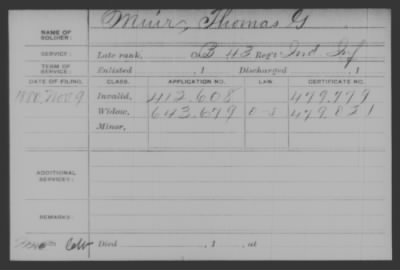 NAME OF SOLDIER: Muir, Thomas G
SERVICE: Late rank, Co. B 43 Reg't Ind Inf
TERM OF SERVICE: Enlisted , 1 Discharged , 1
DATE OF FILING. CLASS. APPLICATION NO. LAW. CERTIFICATE NO.
1880, Nov 9 Invalid, 412.608 479.779
Widow, 643.679 479.021
Minor,
ADDITIONAL SERVICES:
REMARKS:
Died , 1 , at